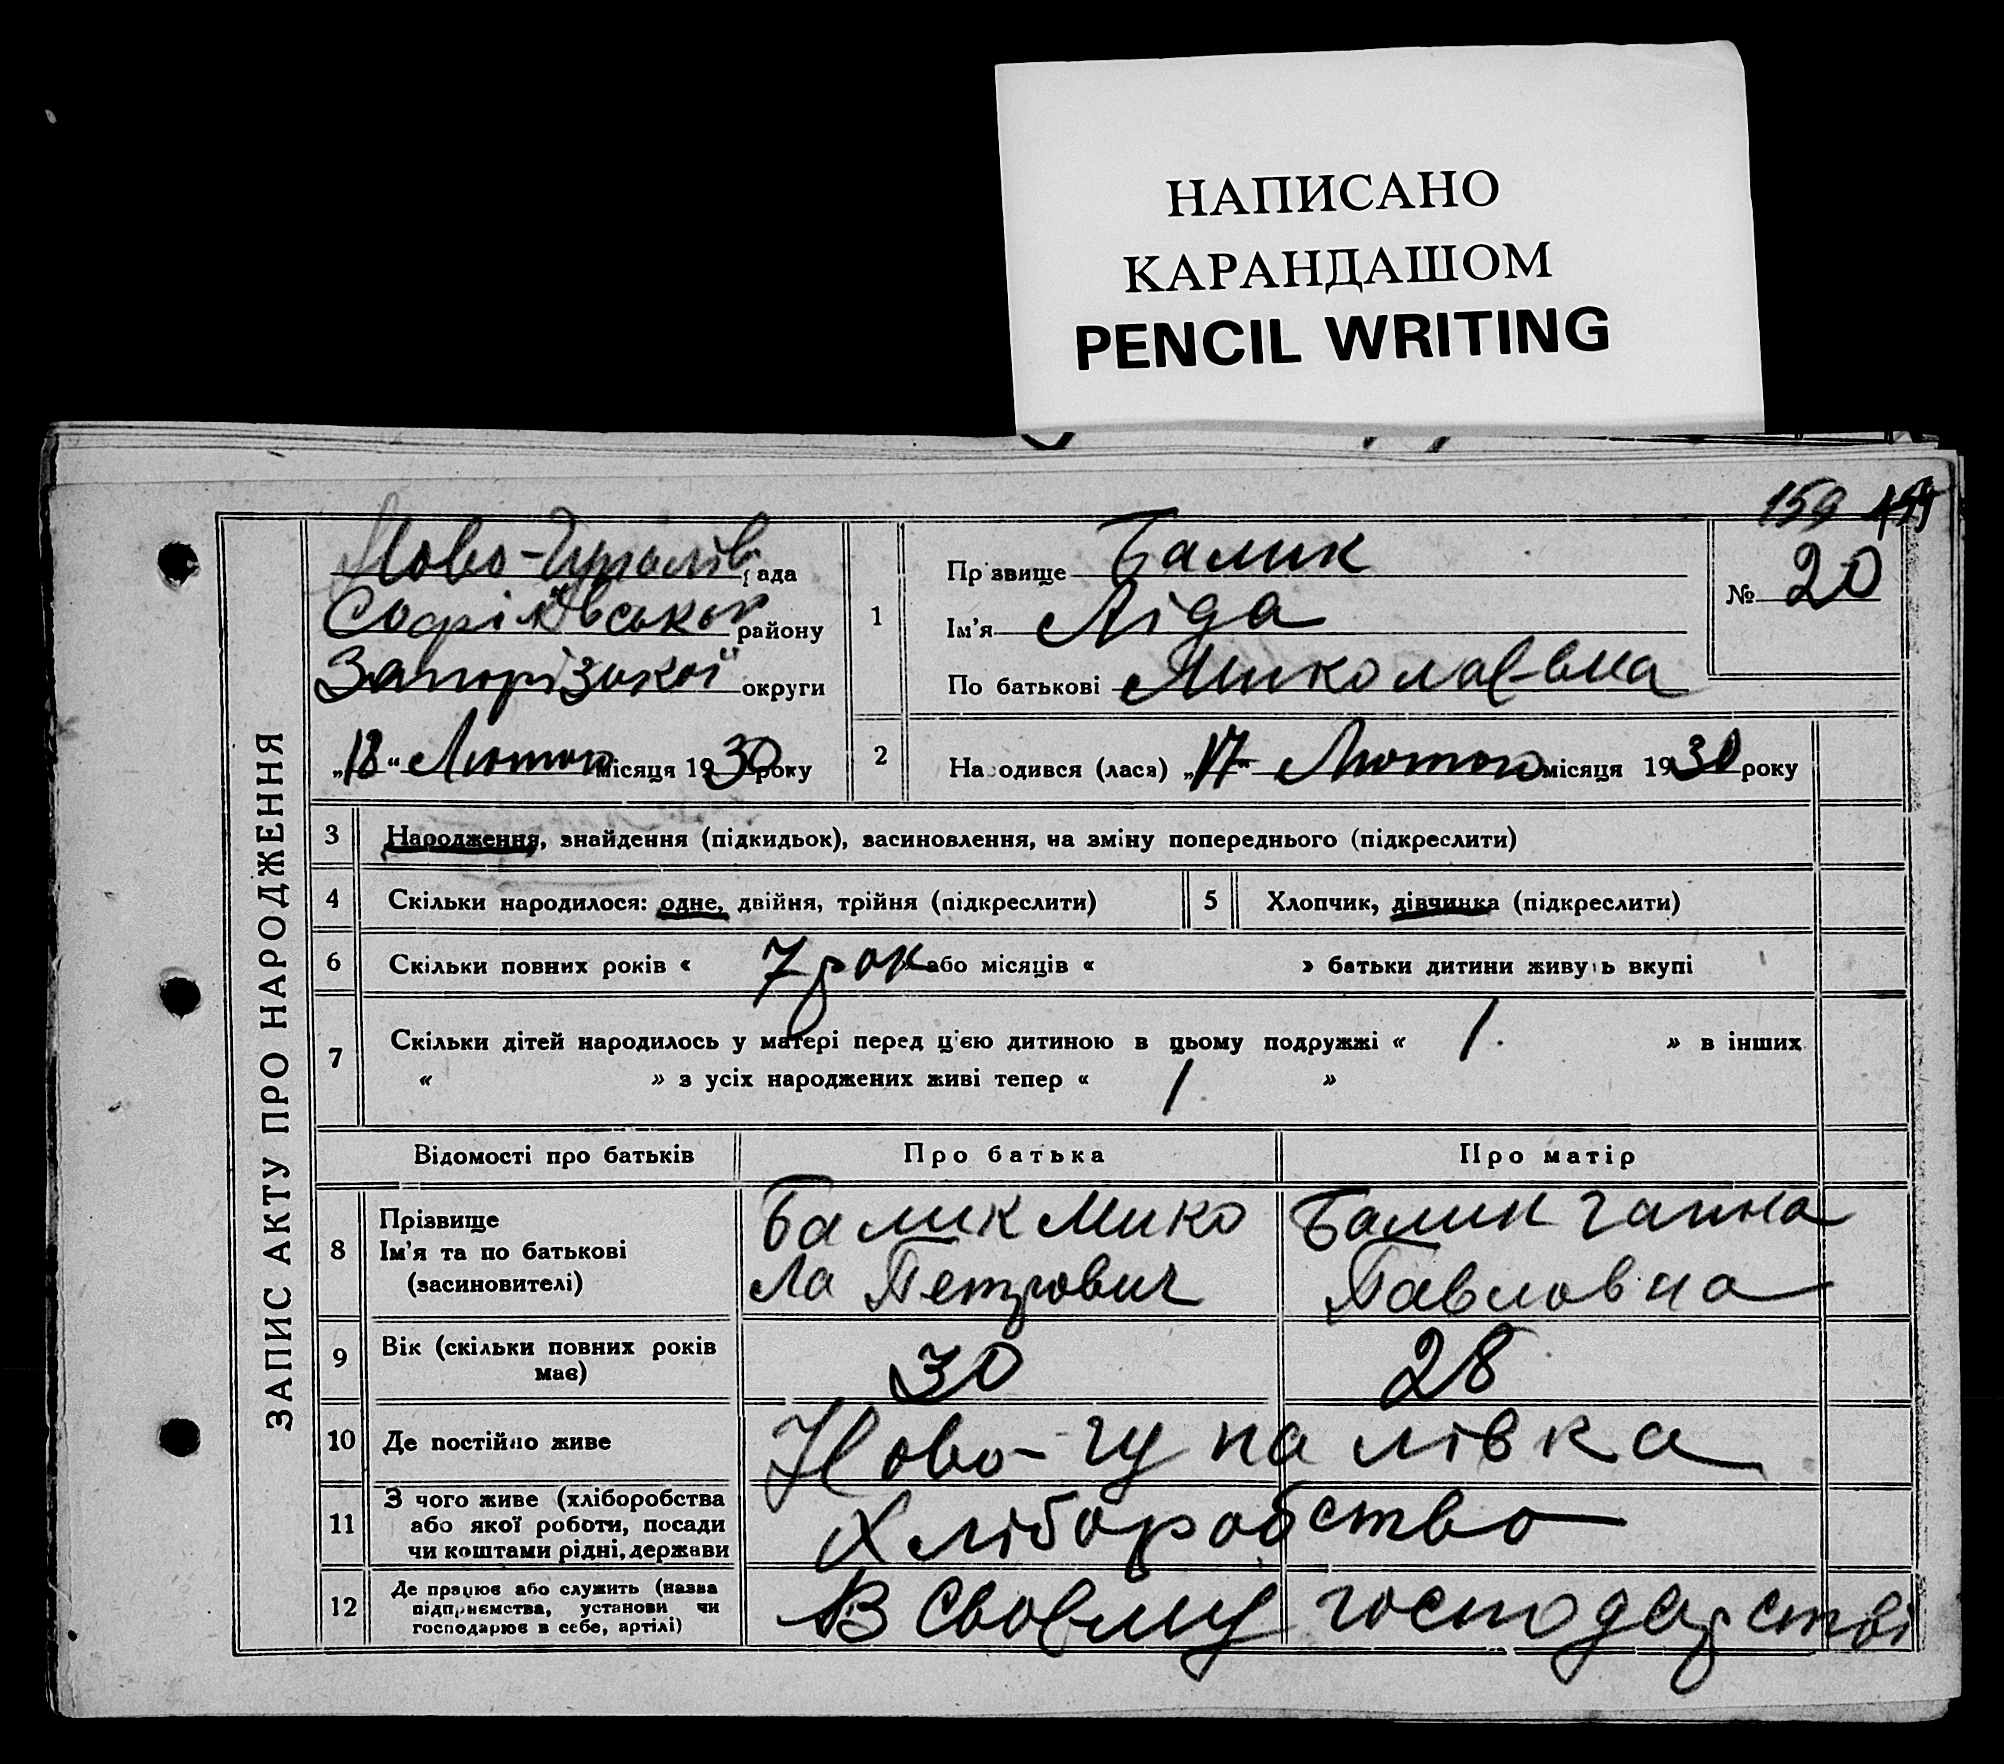 НАПИСАНО
КАРАНДАШОМ
PENCIL WRITING
159
ЗАПИС АКТУ ПРО НАРОДЖЕННЯ
Ново- рада
Софіївської району
Запорізької округи
„18“ Лютого місяця 1930 року
1
Прізвище Балик
Ім'я Ліда
По батькові Миколаєвна
№ 20
2 Народився (лася) „17“ Лютого місяця 1930 року
3 Народження, знайдення (підкидьок), засиновлення, на зміну попереднього (підкреслити)
4 Скільки народилося: одне, двійня, трійня (підкреслити) 5 Хлопчик, дівчинка (підкреслити)
6 Скільки повних років « 7 рок » або місяців « » батьки дитини живуть вкупі
7 Скільки дітей народилось у матері перед цією дитиною в цьому подружжі « 1. » в інших
« » з усіх народжених живі тепер « 1 »
Відомості про батьків Про батька Про матір
8 Прізвище
Ім'я та по батькові
(засиновителі)
Балик Мико
ла Петрович
Балик Ганна
Павловна
9 Вік (скільки повних років
має)
30 28
10 Де постійно живе Ново-Гупалівка
11 З чого живе (хліборобства
або якої роботи, посади
чи коштами рідні, держави
Хліборобство
12 Де працює або служить (назва
підприємства, установи чи
господарює в себе, артілі)
В своєму господарстві